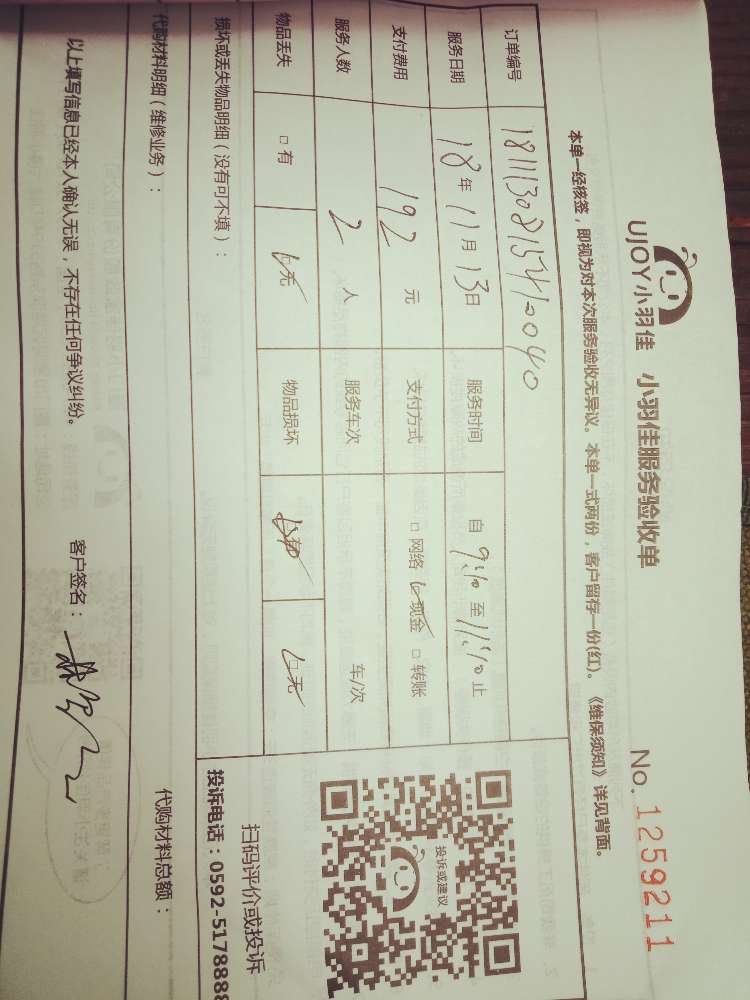 UJOY小羽佳 小羽佳服务验收单 No. 1259211
本单一经核签，即视为对本次服务验收无异议。本单一式两份，客户留存一份(红)。《维保须知》详见背面。
订单编号 18111308154120040
服务日期 18年11月13日 服务时间 自9:10至11:10止
支付费用 192元 支付方式 □网络 □现金 □转账
服务人数 2人 服务车次 车/次
物品丢失 □有 □无 物品损坏 □有 □无
损坏或丢失物品明细（没有可不填）：
投诉或建议
扫码评价或投诉
投诉电话：0592-5178888
代购材料明细（维修业务）： 代购材料总额：
以上填写信息已经本人确认无误，不存在任何争议纠纷。 客户签名：